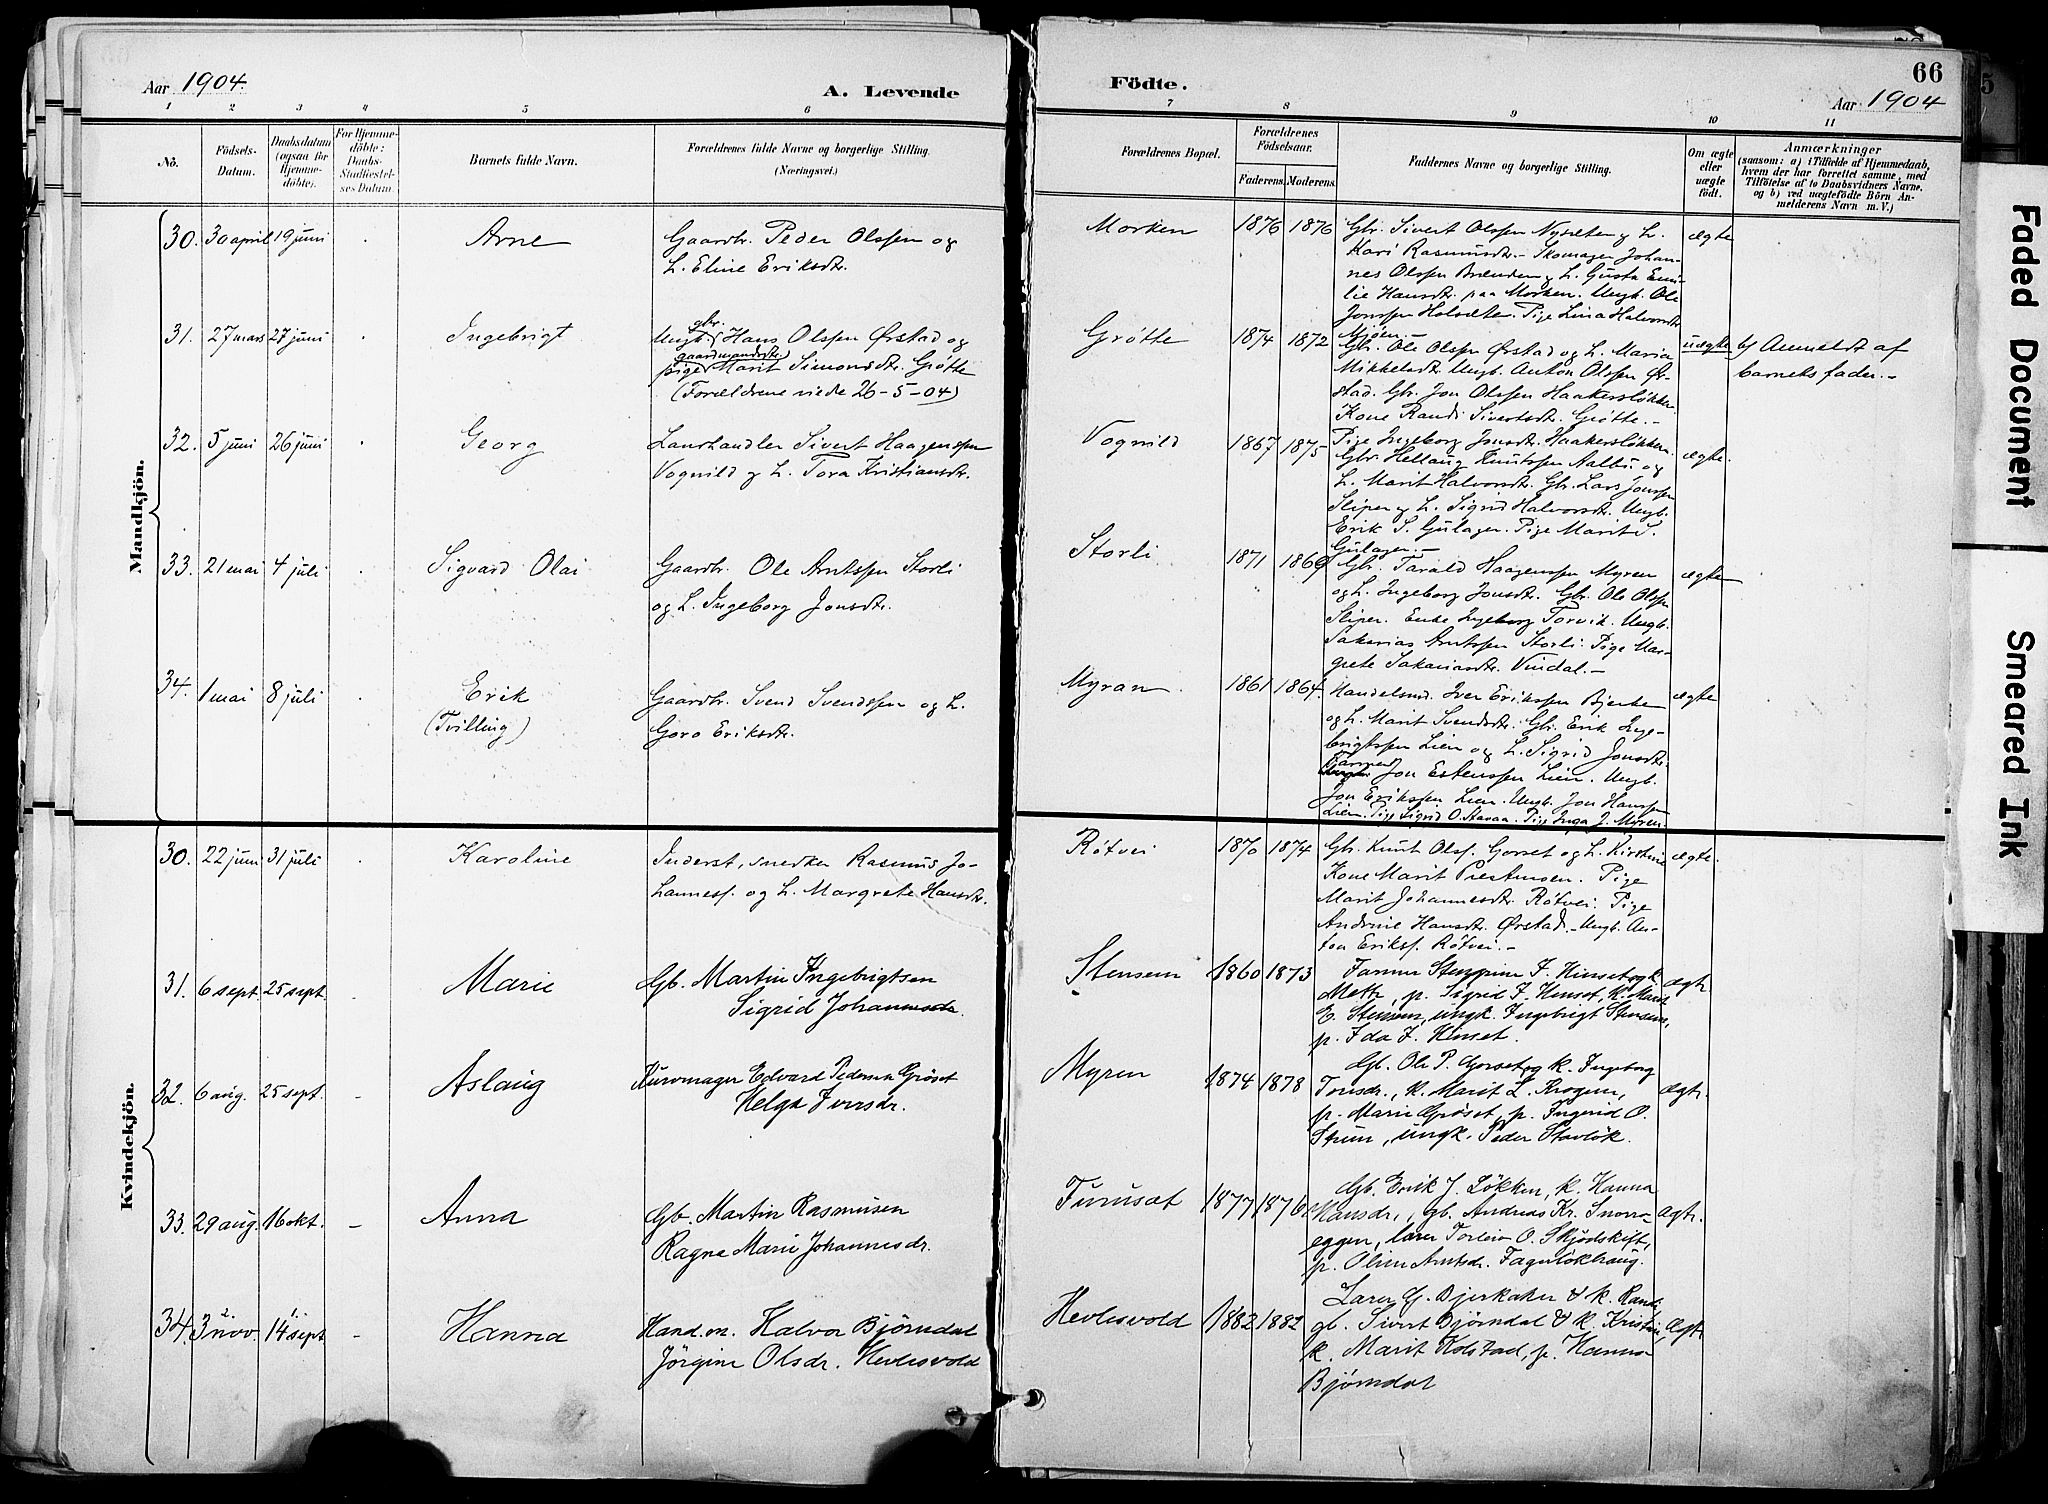 Aar 1904.
A. Levende
Födte.
66
Aar 1904
1 2 3 4 5 6 7 8 9 10 11
No.
Födsels-
Datum.
Daabsdatum
(ogsaa for
Hjemme-
döbte).
For Hjemme-
döbte:
Daabs-
Stadfæstel-
ses Datum.
Barnets fulde Navn.
Forældrenes fulde Navne og borgerlige Stilling.
(Næringsvei.)
Forældrenes Bopæl.
Forældrenes
Födselsaar.
Faderens. Moderens.
Faddernes Navne og borgerlige Stilling.
Om ægte
eller
uægte
födt.
Anmærkninger
(saasom: a) i Tilfælde af Hjemmedaab,
hvem der har forrettet samme, med
Tilföielse af to Daabsvidners Navne,
og b) ved uægtefödte Börn An-
melderens Navn m. V.)
Mandkjön.
30. 30 april 19 juni
Arne
Gaardbr. Peder Olssen og
h. Eline Eriksdtr.
Morken
1876 1876
Gbr. Sivert Olssen Nysæter og h.
Kari Rasmusdtr. Skomager Johan-
nes Olssen Brænden og h. Gusta Emi-
lie Hansdtr. paa Morken. Ungk. Ole
Jonssen Holsæter. Pige Lina Halvorsdtr.
Mjøen.-
ægte
31. 27 mars 27 juni
Ingebrigt
gbr.
Ungk. Hans Olssen Ørstad og
gaardmandsdtr.
pige Marit Simonsdtr. Grøtte
(Forældrene viede 26-5-04)
Grøtte
1874 1872
Gbr. Ole Olssen Ørstad og h. Maria
Mikkelsdtr. Ungk. Anton Olssen Ør-
stad. Gbr. Jon Olssen Haakersløkken.
Kone Randi Sivertsdtr. Grøtte.-
Pige Ingeborg Jonsdtr. Haakersløkken.
uægte
b) Anmeldt af
barnets fader.-
32. 5 juni 26 juni
Georg
Landhandler Sivert Haagenssen
Vognild og h. Tora Kristiansdtr.
Vognild
1867 1875
Gbr. Hellaug Knutssen Aalbu og
h. Marit Halvorsdtr. Gbr. Lars Jonssen
Sliper og h. Sigrid Halvorsdtr. Ungk.
Erik S. Gulager. Pige Marit S.
Gulager.-
ægte.
33. 21 mai 4 juli
Sigvard Olai
Gaardbr. Ole Arntssen Storli
og h. Ingeborg Jonsdtr.
Storli
1871 1869
Gbr. Tarald Haagenssen Myren
og h. Ingeborg Jonsdtr. Gbr. Ole Olssen
Sliper. Enke Ingeborg Torvik. Ungk.
Sakarias Arntssen Storli. Pige Mar-
grete Sakariasdtr. Vindal.-
ægte
34. 1 mai 8 juli
Erik
(Tvilling)
Gaardbr. Svend Svendssen og h.
Goro Eriksdtr.
Myran
1861 1864.
Handelsmd. Iver Erikssen Bjerke
og h. Marit Svendsdtr. Gbr. Erik Inge-
brigtssen Lien og h. Sigrid Jonsdtr.
Jon Estenssen Lien. Ungk.
Jon Erikssen Lien. Ungk. Jon Hanssen
Lien. Pige Sigrid O. Havaa. Pige Inga J. Myren.
ægte
Kvindekjön.
30. 22 juni 31 juli
Karoline
Inderst, snedker Rasmus Jo-
hanness. og h. Margrete Hansdtr.
Røtvei
1870 1874
Gbr. Knut Olss. Gorset og h. Kirstine
Kone Marit Prestmoen. Pige
Marit Johannesdtr. Røtvei. Pige
Andrine Hansdtr. Ørstad.- Ungk. An-
ton Erikss. Røtvei.-
ægte.
31. 6 sept. 25 sept.
Marie
Gb. Martin Ingebrigtsen
Sigrid Johannesdr.
Stensem
1860 1873
Mette, p. Sigrid J. Hinset, k. Marit
E. Stensem, ungk. Ingebrigt Stensem,
p. Ida J. Hinset.
ægte.
32. 6 aug. 25 sept.
Aslaug
Kurvmager Edvard Pedersen Grøset
Helga Iversdr.
Myren
1874 1878
Gb. Ole P. Gorset og k. Ingeborg
Tonsdr., k. Marit L. Krogen,
p. Marie Grøset, p. Ingerid O.
Stuen, ungk. Peder Stavløk.
ægte.
33. 29 aug. 16 okt.
Anna
Gb. Martin Rasmusen
Ragne Marie Johannesdr.
Furusæt
1877 1876
Gb. Erik J. Løkken, k. Hanna
Hansdr., gb. Andreas Kr. Snøve-
eggen, lærer Torleiv O. Skjødskift,
p. Oline Arntsdr. Fagerlökhaug.
ægte.
34. 3 nov. 14 sept
Hanna
Hand.m. Halvor Bjørndal
Jörgine Olsdr. Hevlesvold
Hevlesvold
1882 1882
Lærer G. Bjerkaker & k. Randi,
gb. Sivert Bjørndal & k. Kristine,
k. Marit Kolstad, p. Hanna
Bjørndal
ægte
Faded Document
Smeared Ink